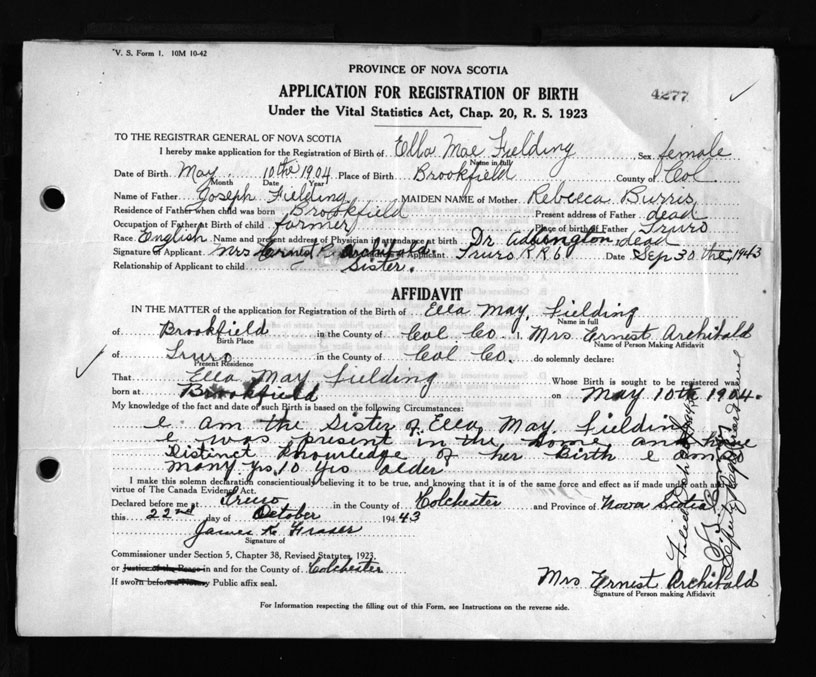 "V. S. Form 1. 10M 10-42
PROVINCE OF NOVA SCOTIA
APPLICATION FOR REGISTRATION OF BIRTH
4277
Under the Vital Statistics Act, Chap. 20, R. S. 1923
TO THE REGISTRAR GENERAL OF NOVA SCOTIA
I hereby make application for the Registration of Birth of Ella Mae Fielding Sex female
Name in full
Date of Birth May 10the 1904 Place of Birth Brookfield County of Col
Month Date Year
Name of Father Joseph Fielding MAIDEN NAME of Mother Rebecca Burris
Residence of Father when child was born Brookfield Present address of Father dead
Occupation of Father at Birth of child farmer Place of birth of Father Truro
Race English Name and present address of Physician in attendance at birth Dr dead
Signature of Applicant Mrs Ernest R. Archibald Address of Applicant Truro R R 6 Date Sep 30 the 1943
Relationship of Applicant to child Sister.
AFFIDAVIT
IN THE MATTER of the application for Registration of the Birth of Ella May Fielding
Name in full
of Brookfield in the County of Col Co. I Mrs Ernest Archibald
Birth Place Name of Person Making Affidavit
of Truro in the County of Col Co. do solemnly declare:
Present Residence
That Ella May Fielding Whose Birth is sought to be registered was
born at Brookfield on May 10th 1904.
My knowledge of the fact and date of such Birth is based on the following Circumstances:
I am the Sister of Ella May Fielding
I was present in the home and have
Distinct Knowledge of her Birth I am
many yrs. 10 yrs older
I make this solemn declaration conscientiously believing it to be true, and knowing that it is of the same force and effect as if made under oath and by
virtue of The Canada Evidence Act.
Declared before me at Truro in the County of Colchester and Province of Nova Scotia
this 22nd day of October 194 43
James K. Fraser
Signature of
Commissioner under Section 5, Chapter 38, Revised Statutes, 1923.
or Justice of the Peace in and for the County of Colchester
If sworn before a Notary Public affix seal.
Mrs Ernest Archibald
Signature of Person making Affidavit
For Information respecting the filling out of this Form, see Instructions on the reverse side.
Filed Oct
Deputy Registrar General